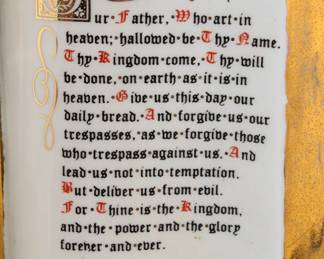 Our·Father,·Who·art·in
heaven;·hallowed·be·Thy·Name.
Thy·Kingdom·come,·Thy·will
be·done,·on·earth·as·it·is·in
heaven.·Give·us·this·day·our
daily·bread.·And·forgive·us·our
trespasses,·as·we·forgive·those
who·trespass·against·us.·And
lead·us·not·into·temptation.
But·deliver·us·from·evil.
For·Thine·is·the·Kingdom,
and·the·power·and·the·glory
forever·and·ever.